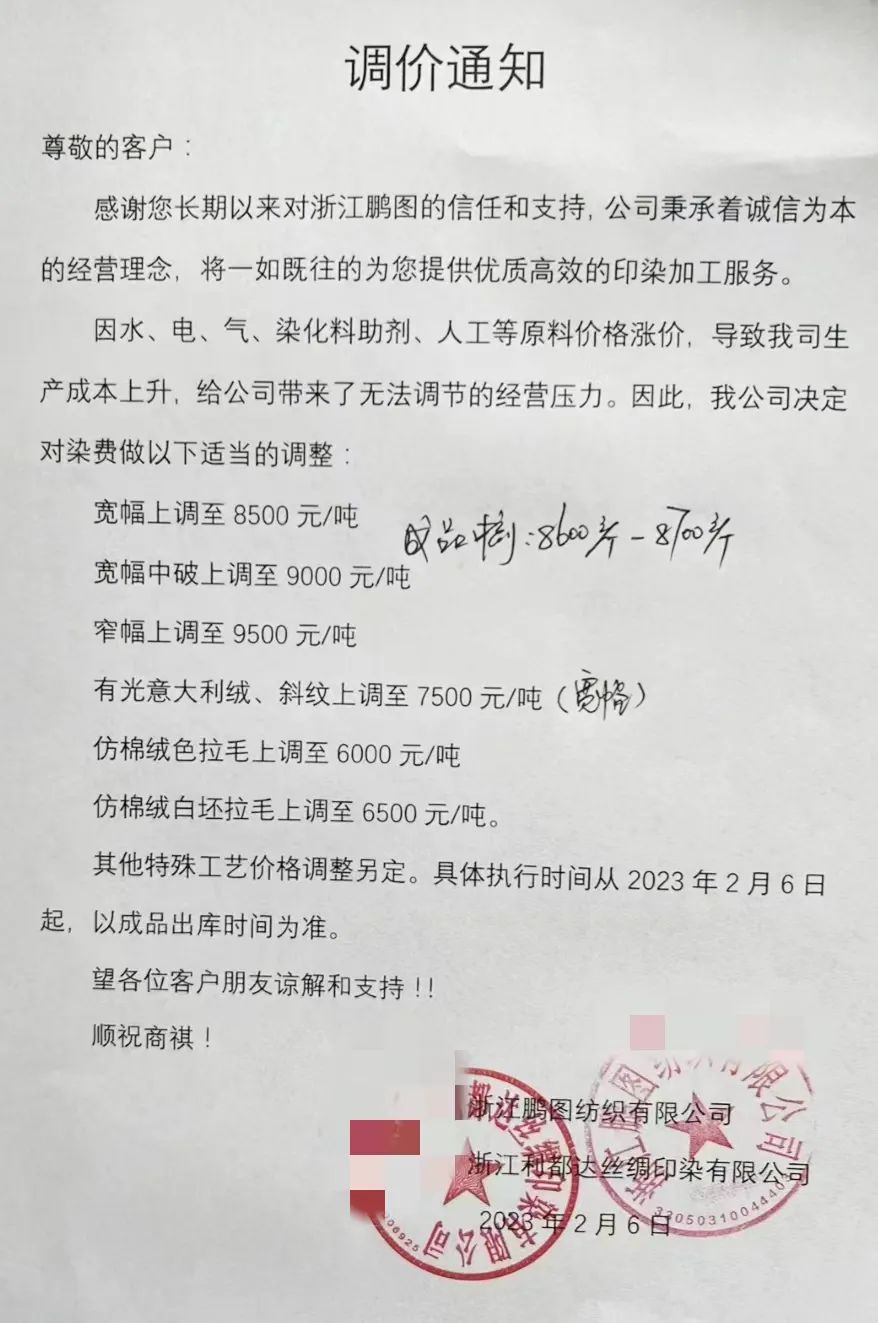 调价通知
尊敬的客户：
感谢您长期以来对浙江鹏图的信任和支持，公司秉承着诚信为本
的经营理念，将一如既往的为您提供优质高效的印染加工服务。
因水、电、气、染化料助剂、人工等原料价格涨价，导致我司生
产成本上升，给公司带来了无法调节的经营压力。因此，我公司决定
对染费做以下适当的调整：
宽幅上调至 8500 元/吨
成品中剖：8600 - 8700
宽幅中破上调至 9000 元/吨
窄幅上调至 9500 元/吨
有光意大利绒、斜纹上调至 7500 元/吨（宽幅）
仿棉绒色拉毛上调至 6000 元/吨
仿棉绒白坯拉毛上调至 6500 元/吨。
其他特殊工艺价格调整另定。具体执行时间从 2023 年 2 月 6 日
起，以成品出库时间为准。
望各位客户朋友谅解和支持！！
顺祝商祺！
浙江鹏图纺织有限公司
浙江利都达丝绸印染有限公司
2023 年 2 月 6 日
丝绸印染有限公司
206925
浙江鹏图纺织有限公司